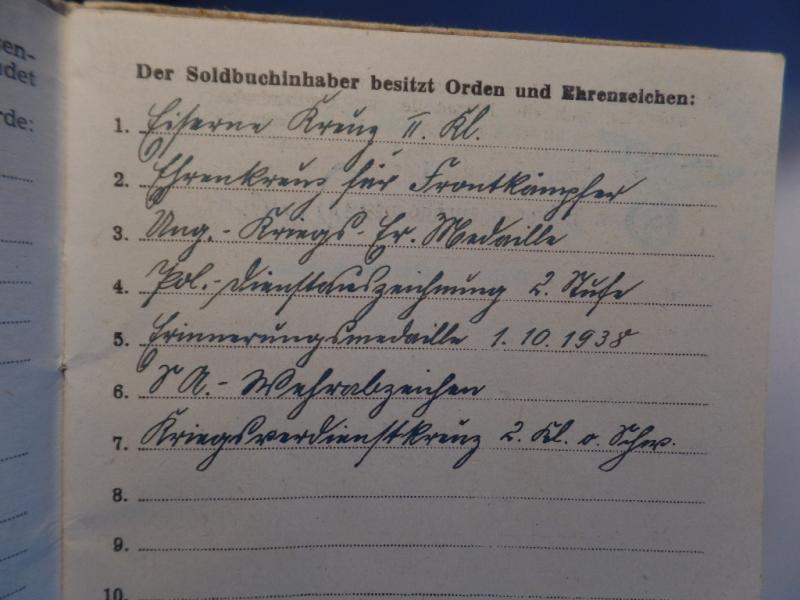 en-
det
rde:
Der Soldbuchinhaber besitzt Orden und Ehrenzeichen:
1. Eiserne Kreuz II. Kl.
2. Ehrenkreuz für Frontkämpfer
3. Ung.- Kriegs- Er. Medaille
4. Pol.- Dienstauszeichnung 2. Stufe
5. Erinnerungsmedaille 1.10.1938
6. S A.- Wehrabzeichen
7. Kriegsverdienstkreuz 2. Kl. o. Schw.
8.
9.
10.